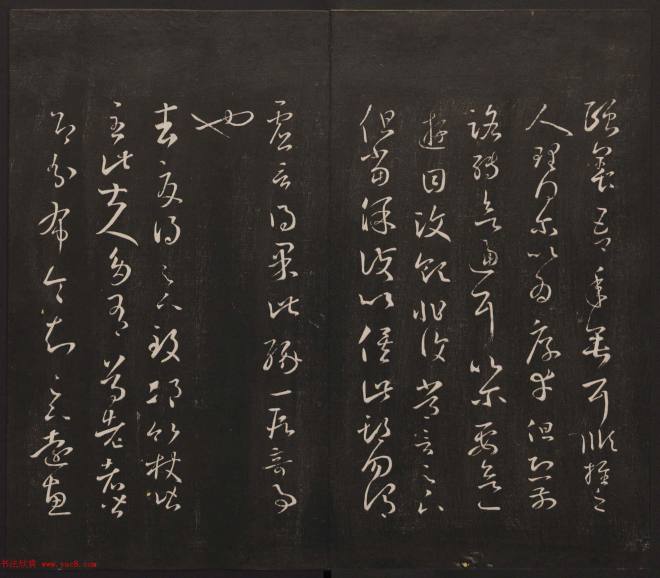 頤養吾年垂耳順推之
人理得尔以為厚幸但恐前
路轉欲逼耳以尔要欲一
遊目汶領非復常言足下
但當保護以俟此期勿謂
虛言得果此緣一段奇事
也
去夏得足下致邛竹杖皆
至此士人多有尊老者皆
即分布令知足下遠惠
书法欣赏 www.yac8.com